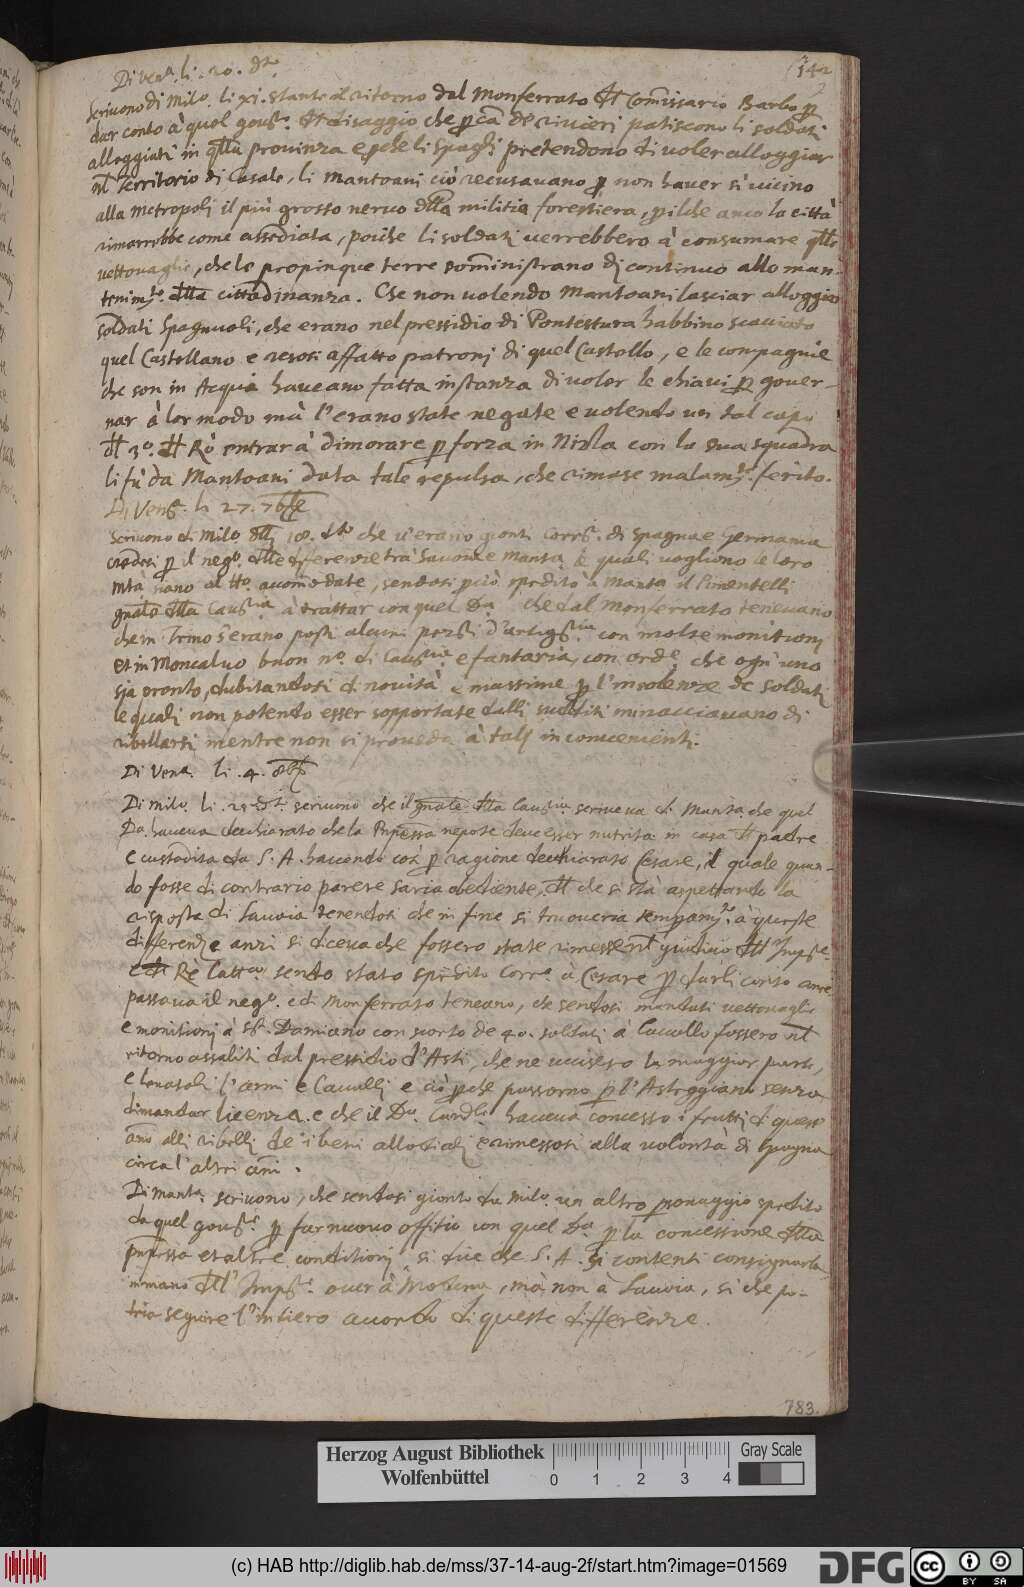 142
Di Vena. li. 20. dto.
Scrivono di Milo. li xi. stante il ritorno dal Monferrato dl Comissario Barbo p
dar conto à quel govre. dl disaggio che p cã de viveri patiscono li soldati
alloggiati in qlla provinza e pche li Spagli. pretendono di voler alloggiar
nl territorio di Casale, li Mantoani ciò recusavano p non haver sì vicino
alla metropoli il più grosso nervo dlla militia forestiera, pilche anco la città
rimarrebbe come assediata, poiche li soldati verrebbero à consumare qlle
vettovaglie, che le propinque terre somministrano di continuo allo man-
tenimto. dlla cittadinanza. Che non volendo Mantoani lasciar alloggiar
soldati Spagnuoli, che erano nel pressidio di Pontestura habbino scacciato
quel Castellano e resosi affatto patroni di quel Castello, e le compagnie
che son in Acqui haveano fatta instanza di voler le chiavi p gover-
nar à lor modo mà l'erano state negate e volendo un tal capo
dl 3o. dl Rò entrar à dimorare p forza in Nizza con la sua squadra
li fù da Mantoani data tale repulsa, che rimase malamte. ferito.
Di Vena. li 27. 7bre
Scrivono di Milo dlli 18. dto che v'erano gionti Corri. di Spagna e Germania
p il nego. dlle differenze trà Savoia e Manta. le quali vogliono le loro
Mtà siano al tto. accomodate, sendosi pciò spedito à Manta il Pimentelli
gnale dlla Cavria. à trattar con quel Da. che dal Monferrato tenevano
che in Trino s'erano posti alcuni pezzi d'artigria. con molte monitioni
et in Moncalvo buon no. di Cavria. e fantaria, con orde. che ogn'uno
sia pronto, dubitandosi di novità e massime p l'insolenze de soldati
le quali non potendo esser sopportate dalli sudditi minacciavano di
ribellarsi mentre non si proveda à tali inconvenienti.
Di Vena. li. 4. 8bre
Di Milo. li. 25 dto. scrivono che il gnale dlla Cavria scriveva di Manta. che quel
Da. haveva dechiarato che la Pnpessa nepote deve esser nutrita in casa dl padre
e custodita da S. A. havendo così p ragione dechiarato Cesare, il quale quan-
do fosse di contrario parere saria obediente, dl che si stà aspettando la
risposta di Savoia tenendosi che in fine si trovera temperamto. à queste
differenze anzi si diceva che fossero state rimesse nl giuditio dll'Impre.
e dl Rè Catto. sendo stato spedito Corre. à Cesare p darli conto come
passava il nego. e di Monferrato teneano, che sendosi mandati vettovaglie
e monitioni à Sto. Damiano con scorta de 40. soldati à Cavallo fossero nl
ritorno assaliti dal pressidio d'Asti, che ne uccisero la maggior parte,
e levatoli l'armi e Cavalli e ciò pche passorno p l'Asteggiano senza
dimandar licenza. e che il Da. Cardle haveva concesso i frutti di questo
ano alli ribelli de i beni allodiali e rimessosi alla volontà di Spagna
circa l'altri ani.
Di Manta. scrivono, che sendosi gionto da Milo un altro psonaggio spedito
da quel govre. p far nuovo offitio con quel Da. p la concessione dlla
pnpessa et altre conditioni si dice che S. A. si contenti consignarla
in mano dll'Impre. over à Modena, mà non à Savoia, sì che po-
tria seguire l'intiero accordo di queste differenze.
783.
Herzog August Bibliothek
Wolfenbüttel
0 1 2 3 4
Gray Scale
(c) HAB http://diglib.hab.de/mss/37-14-aug-2f/start.htm?image=01569
DFG
cc
BY SA